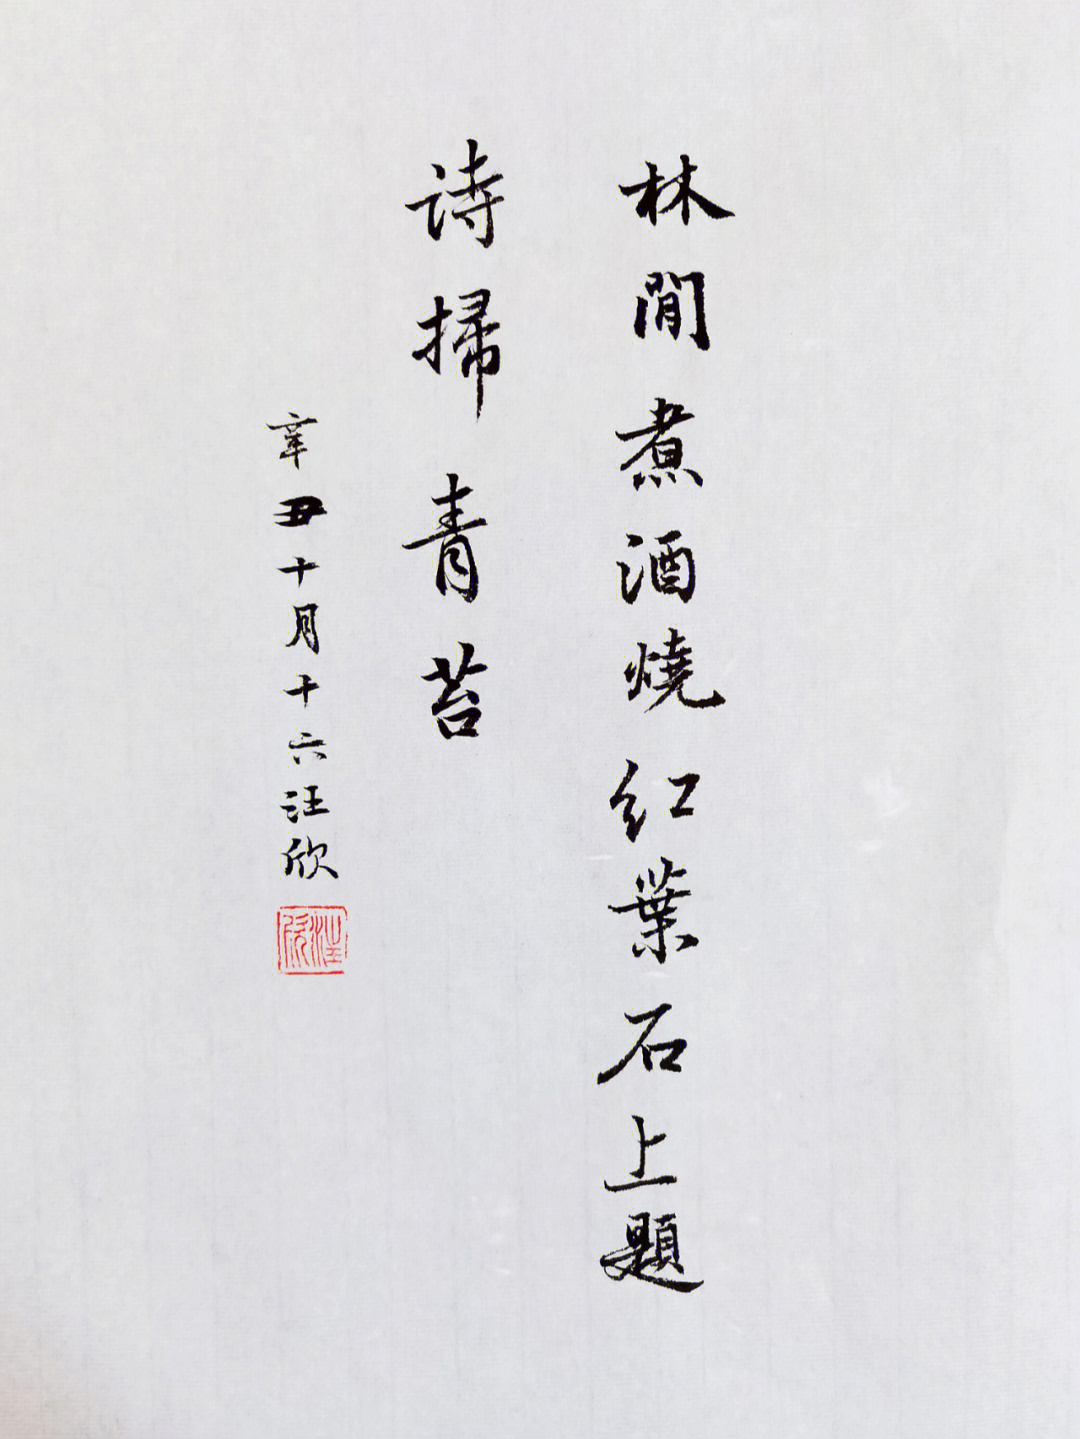 林間煮酒燒紅葉石上題
詩掃青苔
辛丑十月十六汪欣
汪欣